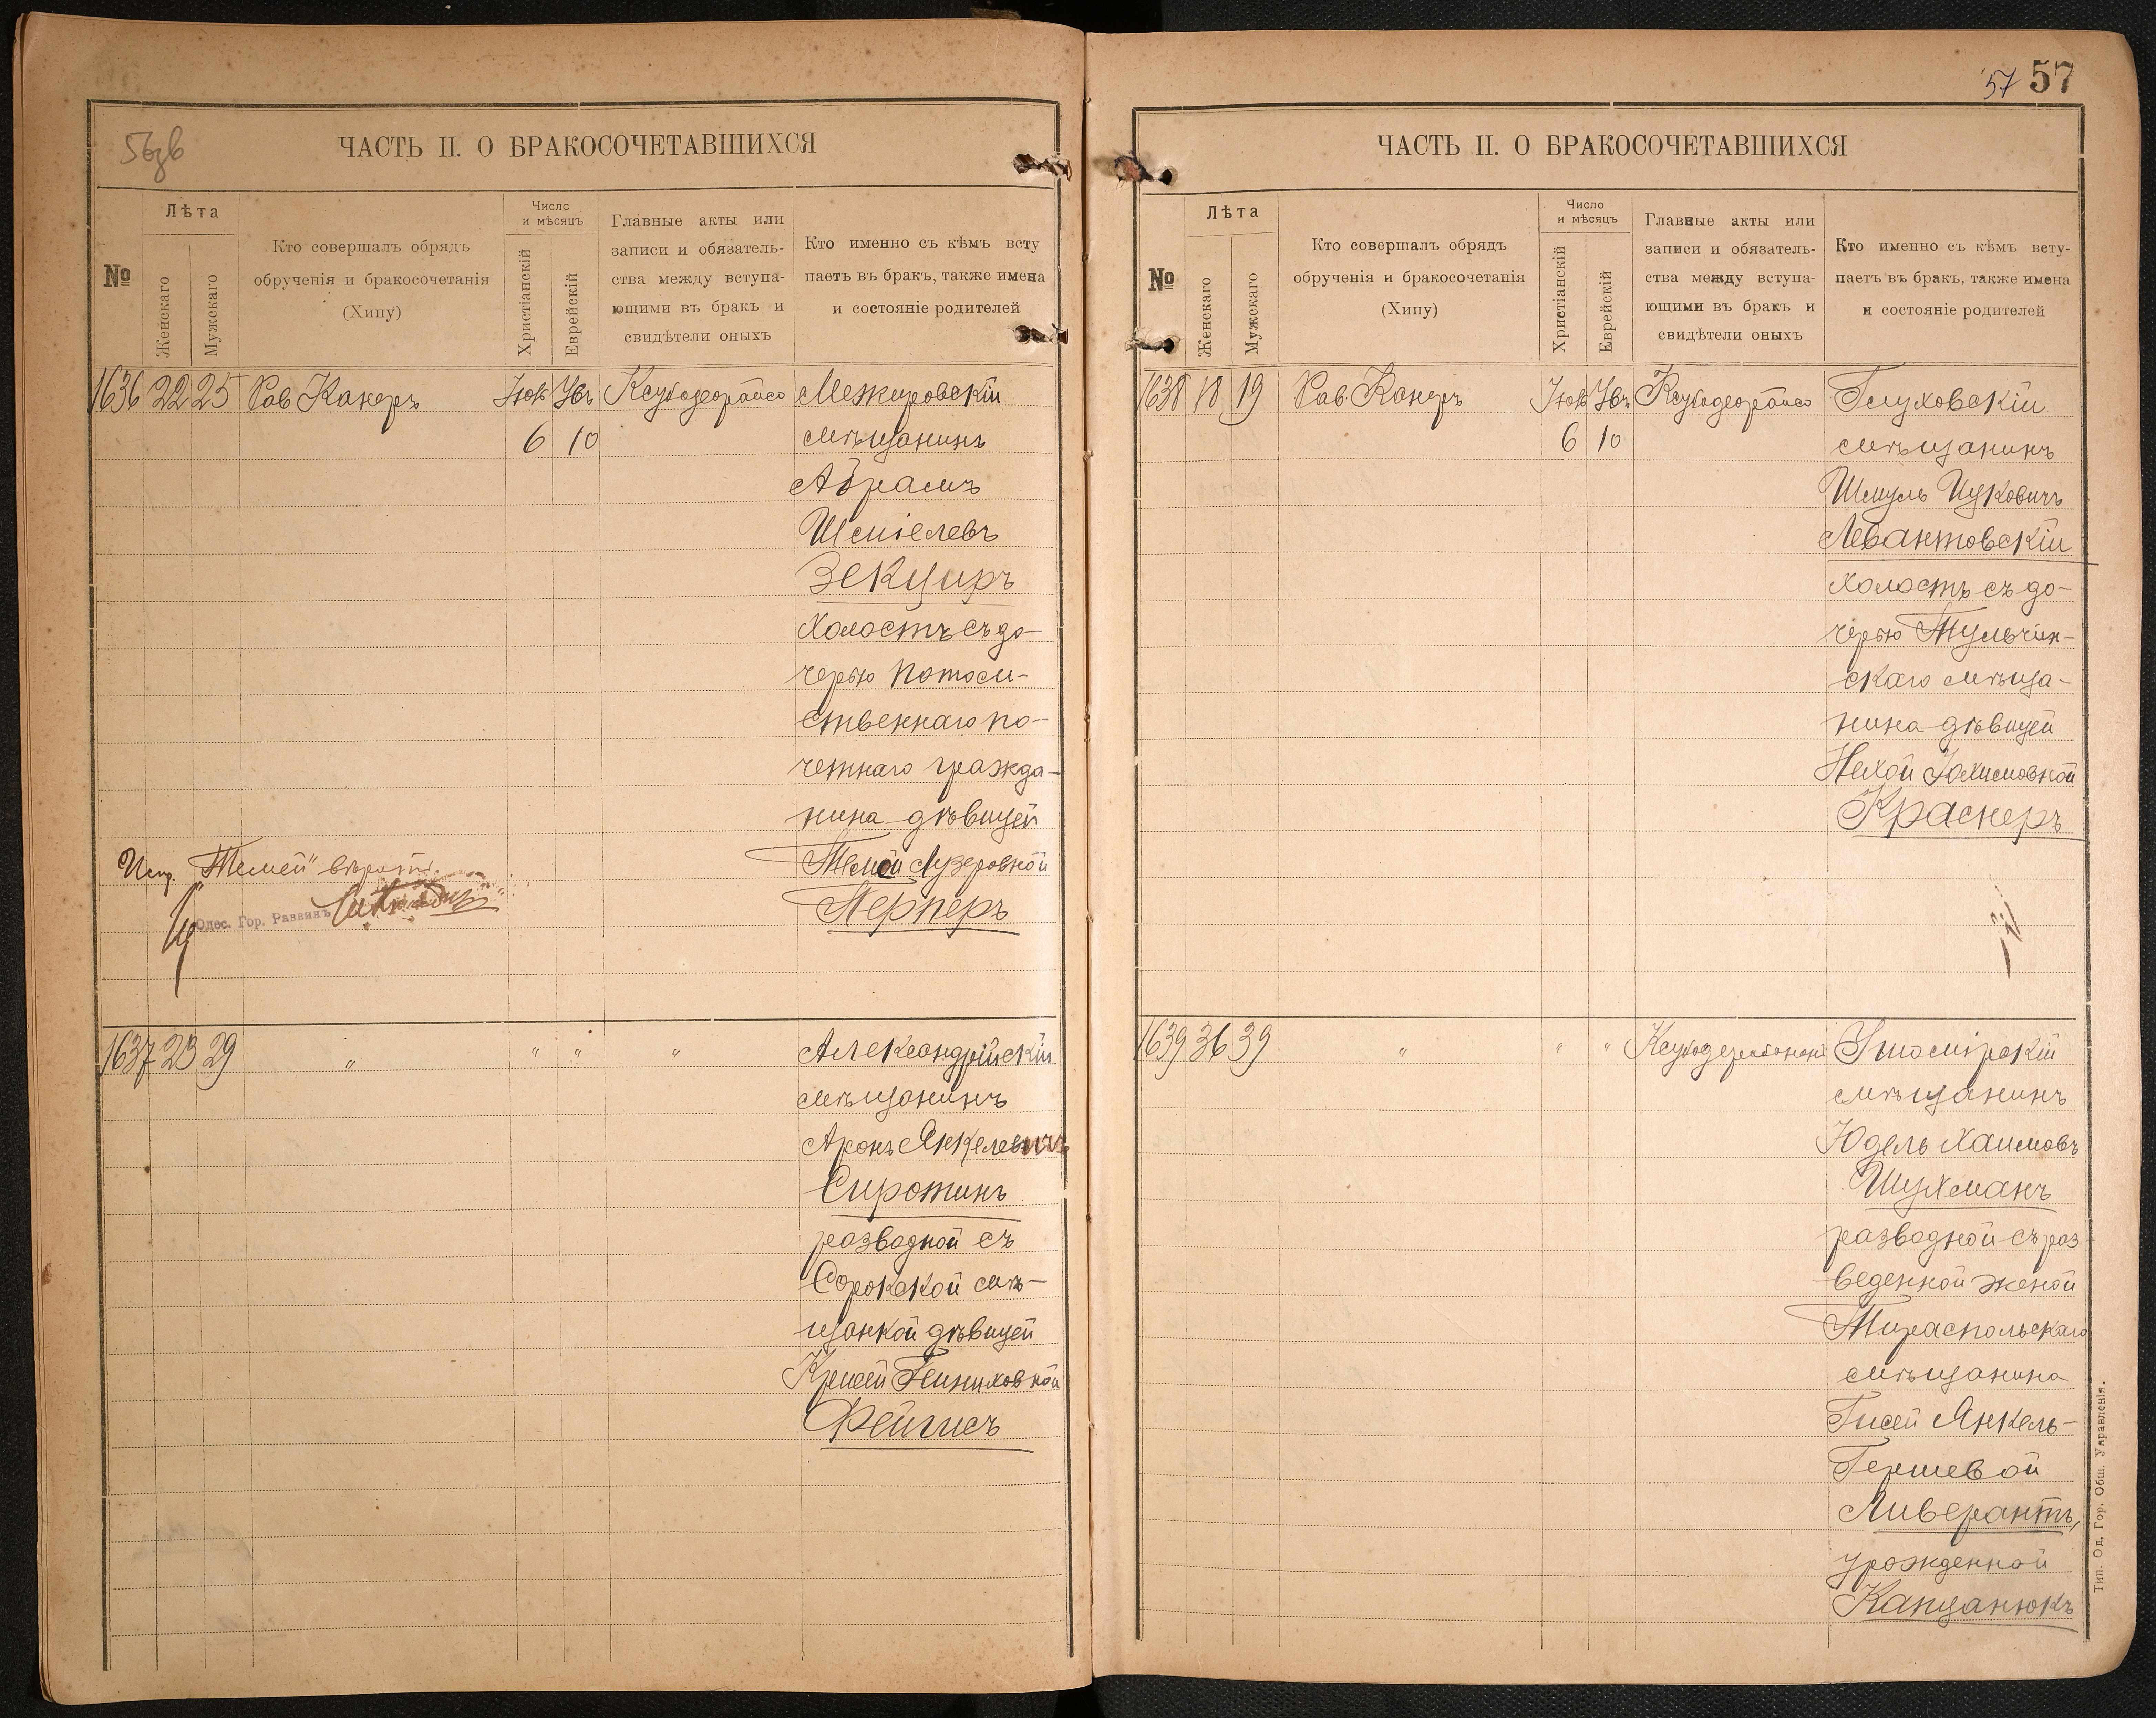 56зв
ЧАСТЬ II. О БРАКОСОЧЕТАВШИХСЯ
№
Лѣта
Женскаго
Мужскаго
Кто совершалъ обрядъ
обрученія и бракосочетанія
(Хипу)
Число
и мѣсяцъ
Христіанскій
Еврейскій
Главные акты или
записи и обязатель-
ства между вступа-
ющими въ бракъ и
свидѣтели оныхъ
Кто именно съ кѣмъ всту
паетъ въ бракъ, также имена
и состояніе родителей
1636 22 25 Рав Канеръ
6 10
Межировскій
мѣщанинъ
Абрамъ
Шміелевъ
Зекциръ
холостъ съ до-
черью потом-
ственнаго по-
четнаго гражда-
нина дѣвицей
Темей Лузеровной
Лернеръ
"Темей" вѣрить.
Одес. Гор. Раввинъ
1637 23 29 " " " "
Александрійскій
мѣщанинъ
Аронъ Янкелевичъ
Сиротинъ
разводной съ
Сорокской мѣ-
щанкой дѣвицей
Фейгисъ
57 57
ЧАСТЬ II. О БРАКОСОЧЕТАВШИХСЯ
№
Лѣта
Женскаго
Мужскаго
Кто совершалъ обрядъ
обрученія и бракосочетанія
(Хипу)
Число
и мѣсяцъ
Христіанскій
Еврейскій
Главные акты или
записи и обязатель-
ства между вступа-
ющими въ бракъ и
свидѣтели оныхъ
Кто именно съ кѣмъ всту-
паетъ въ бракъ, также имена
и состояніе родителей
1638 18 19 Рав Канеръ
6 10
Глуховскій
мѣщанинъ
Шмуль Ицковичъ
Левантовскій
холостъ съ до-
черью Тульчин-
скаго мѣща-
нина дѣвицей
Нехой Юхимовной
Краснеръ
1639 36 39 " " "
мѣщанинъ
Юдель Хаимовъ
Шухманъ
разводной съ раз
веденной женой
Тираспольскаго
мѣщанина
Гисей Янкель-
Гершевой
Ливерантъ,
урожденной
Капцанюкъ
Тип. Од. Гор. Общ. Управленія.